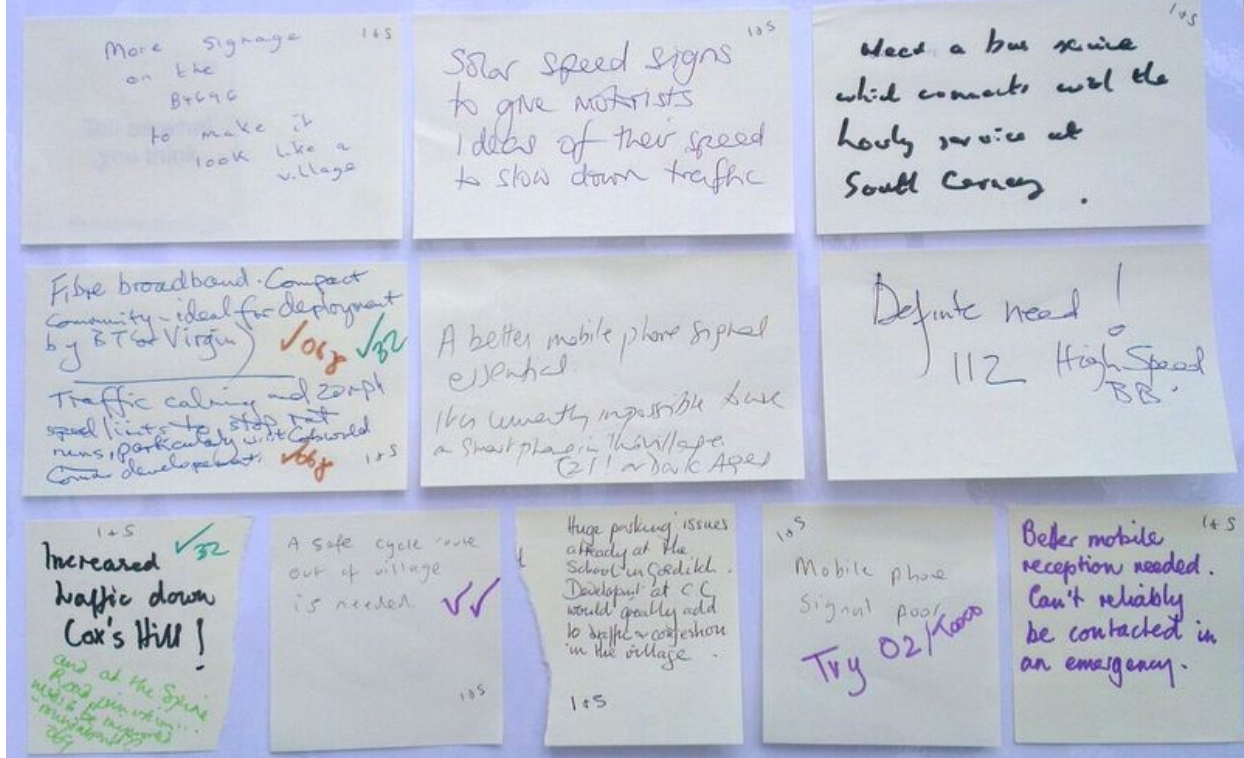 More signage
on the
B4696
to make it
look like a
village
I+S
Solar speed signs
to give motorists
ideas of their speed
to slow down traffic
I+S
Need a bus service
which connects with the
hourly service at
South Cerney.
I+S
Fibre broadband. Compact
Community - ideal for deployment
by BT (or Virgin)
✓Obj ✓32
Traffic calming and 20mph
speed limits to stop rat
runs, particularly with Cotswold
Comm developement.
✓Obj
I+S
A better mobile phone signal
essential.
It is currently impossible to use
a smart phone in this village
(2G! or Dark Ages
Definite need!
112 High Speed
BB.
I+S
Increased
traffic down
Cox's Hill!
✓32
and at the Spine
Road junction...
needs to be improved
A safe cycle route
out of village
is needed ✓✓
I+S
Huge parking issues
already at the
School in
Development at C.C
would greatly add
to traffic congestion
in the village.
I+S
I+S
Mobile phone
signal poor
Try O2/
I+S
Better mobile
reception needed.
Can't reliably
be contacted in
an emergency.